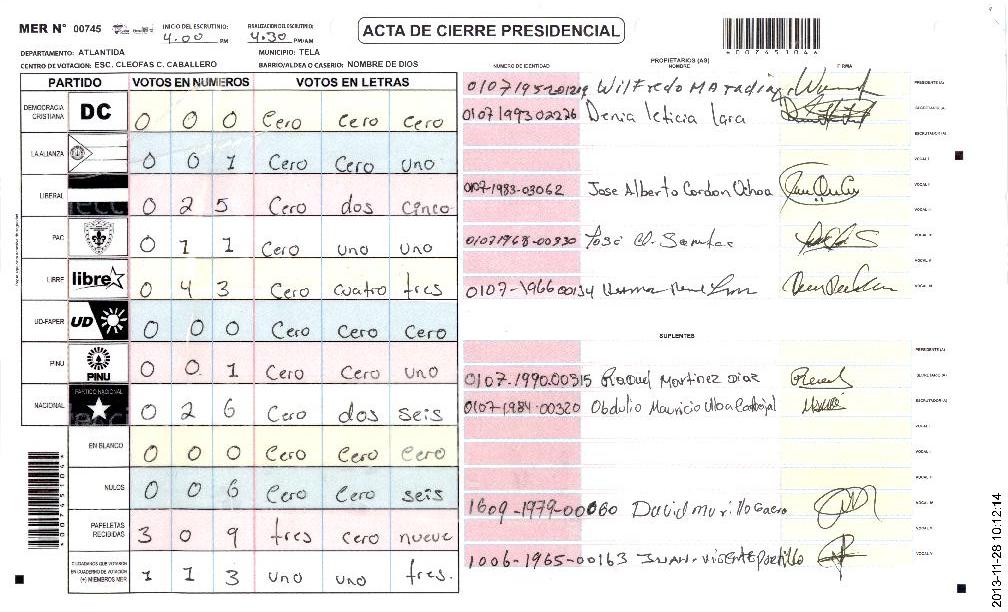 MER N° 00745
INICIO DEL ESCRUTINIO: 4.00 PM
FINALIZACION DEL ESCRUTINIO: 4.30 PM/AM
ACTA DE CIERRE PRESIDENCIAL
DEPARTAMENTO: ATLANTIDA
MUNICIPIO: TELA
CENTRO DE VOTACION: ESC. CLEOFAS C. CABALLERO
BARRIO/ALDEA O CASERIO: NOMBRE DE DIOS
PARTIDO VOTOS EN NUMEROS VOTOS EN LETRAS
DEMOCRACIA CRISTIANA DC 0 0 0 Cero Cero Cero
LA ALIANZA 0 0 1 Cero Cero uno
LIBERAL 0 2 5 Cero dos cinco
PAC 0 1 1 Cero uno uno
LIBRE libre 0 4 3 Cero cuatro tres
UD-FAPER UD 0 0 0 Cero Cero Cero
PINU PINU 0 0 1 Cero Cero uno
NACIONAL PARTIDO NACIONAL 0 2 6 Cero dos seis
EN BLANCO 0 0 0 Cero Cero Cero
NULOS 0 0 6 Cero Cero seis
PAPELETAS RECIBIDAS 3 0 9 tres cero nueve
CIUDADANOS QUE VOTARON EN CUADERNO DE VOTACION (+) MIEMBROS MER 1 1 3 uno uno tres.
NUMERO DE IDENTIDAD
PROPIETARIOS (AS)
NOMBRE
FIRMA
Wilfredo PRESIDENTE(A)
0107199302226 Denia leticia lara SECRETARIO(A)
ESCRUTADOR(A)
VOCAL I
0107-1983-03062 Jose Alberto Cordon Ochoa VOCAL II
VOCAL III
01071968-00330 José VOCAL IV
VOCAL V
0107-196600134 VOCAL VI
SUPLENTES
PRESIDENTE(A)
0107.1990.00315 Raquel Martinez Diaz SECRETARIO(A)
0107-1984-00320 Obdulio Mauricio ESCRUTADOR(A)
VOCAL I
VOCAL II
1609-1979-00060 David
1006-1965-00163 Juan Vicente Portillo
2013-11-28 10:12:14